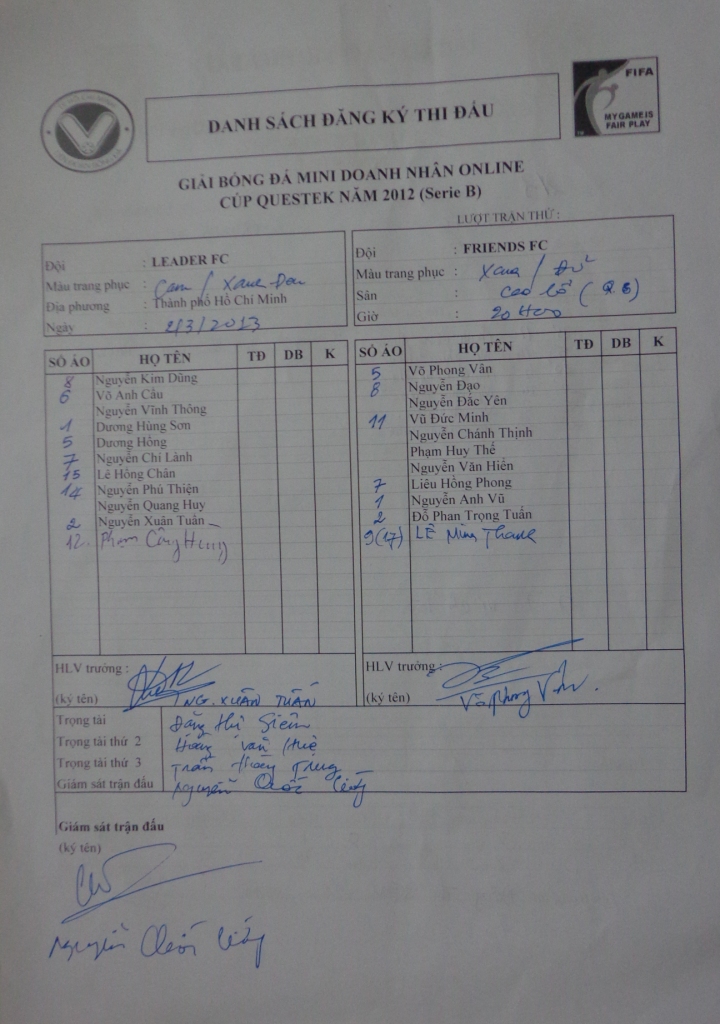 DANH SÁCH ĐĂNG KÝ THI ĐẤU
FIFA
MY GAME IS
FAIR PLAY
GIẢI BÓNG ĐÁ MINI DOANH NHÂN ONLINE
CÚP QUESTEK NĂM 2012 (Serie B)
LƯỢT TRẬN THỨ :
Đội : LEADER FC
Màu trang phục : Cam / Xanh Đen
Địa phương : Thành phố Hồ Chí Minh
Ngày : 2/3/2013
Đội : FRIENDS FC
Màu trang phục : Xanh /
Sân : Cao Lỗ
Giờ : 20
SỐ ÁO HỌ TÊN TĐ DB K
8 Nguyễn Kim Dũng
6 Võ Anh Cầu
Nguyễn Vĩnh Thông
1 Dương Hùng Sơn
5 Dương Hồng
7 Nguyễn Chí Lành
15 Lê Hồng Chân
14 Nguyễn Phú Thiện
Nguyễn Quang Huy
2 Nguyễn Xuân Tuấn
12. Phạm Công Hưng
SỐ ÁO HỌ TÊN TĐ DB K
5 Võ Phong Vân
8 Nguyễn Đạo
Nguyễn Đắc Yên
11 Vũ Đức Minh
Nguyễn Chánh Thịnh
Phạm Huy Thế
Nguyễn Văn Hiển
7 Liêu Hồng Phong
1 Nguyễn Anh Vũ
2 Đỗ Phan Trọng Tuấn
9(17) LÊ Minh Thanh
HLV trưởng :
(ký tên) NG. XUÂN TUẤN
HLV trưởng :
(ký tên) Võ Phong Vân.
Trọng tài Đặng Thị
Trọng tài thứ 2 Hoàng Văn Huệ
Trọng tài thứ 3 Trần Hoàng Trung
Giám sát trận đấu Nguyễn Quốc
Giám sát trận đấu
(ký tên)
Nguyễn Quốc